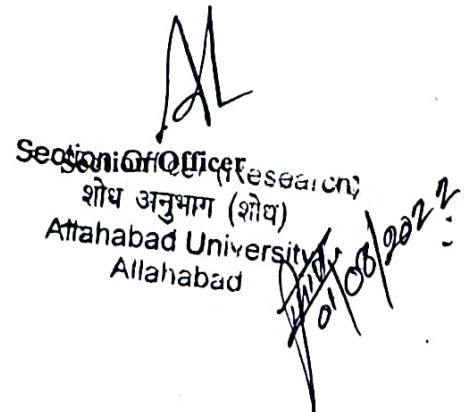 Section Officer (Research)
शोध अनुभाग (शोध)
Allahabad University
Allahabad
01/08/2022